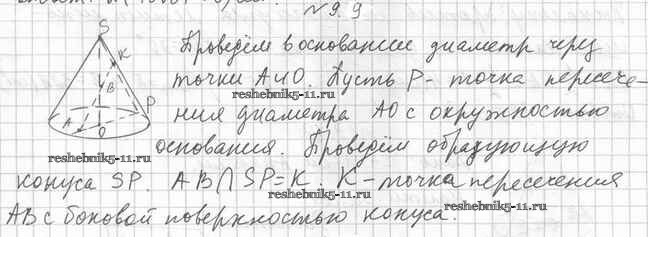 №9.9
S
K
B
A
O
P
Проведём в основании диаметр через
точки А и О. Пусть Р - точка пересече-
reshebnik5-11.ru
ния диаметра АО с окружностью
reshebnik5-11.ru
основания. Проведём образующую
конуса SP. AB∩SP=K. K-точка пересечения
reshebnik5-11.ru
АВ с боковой поверхностью конуса.
reshebnik5-11.ru